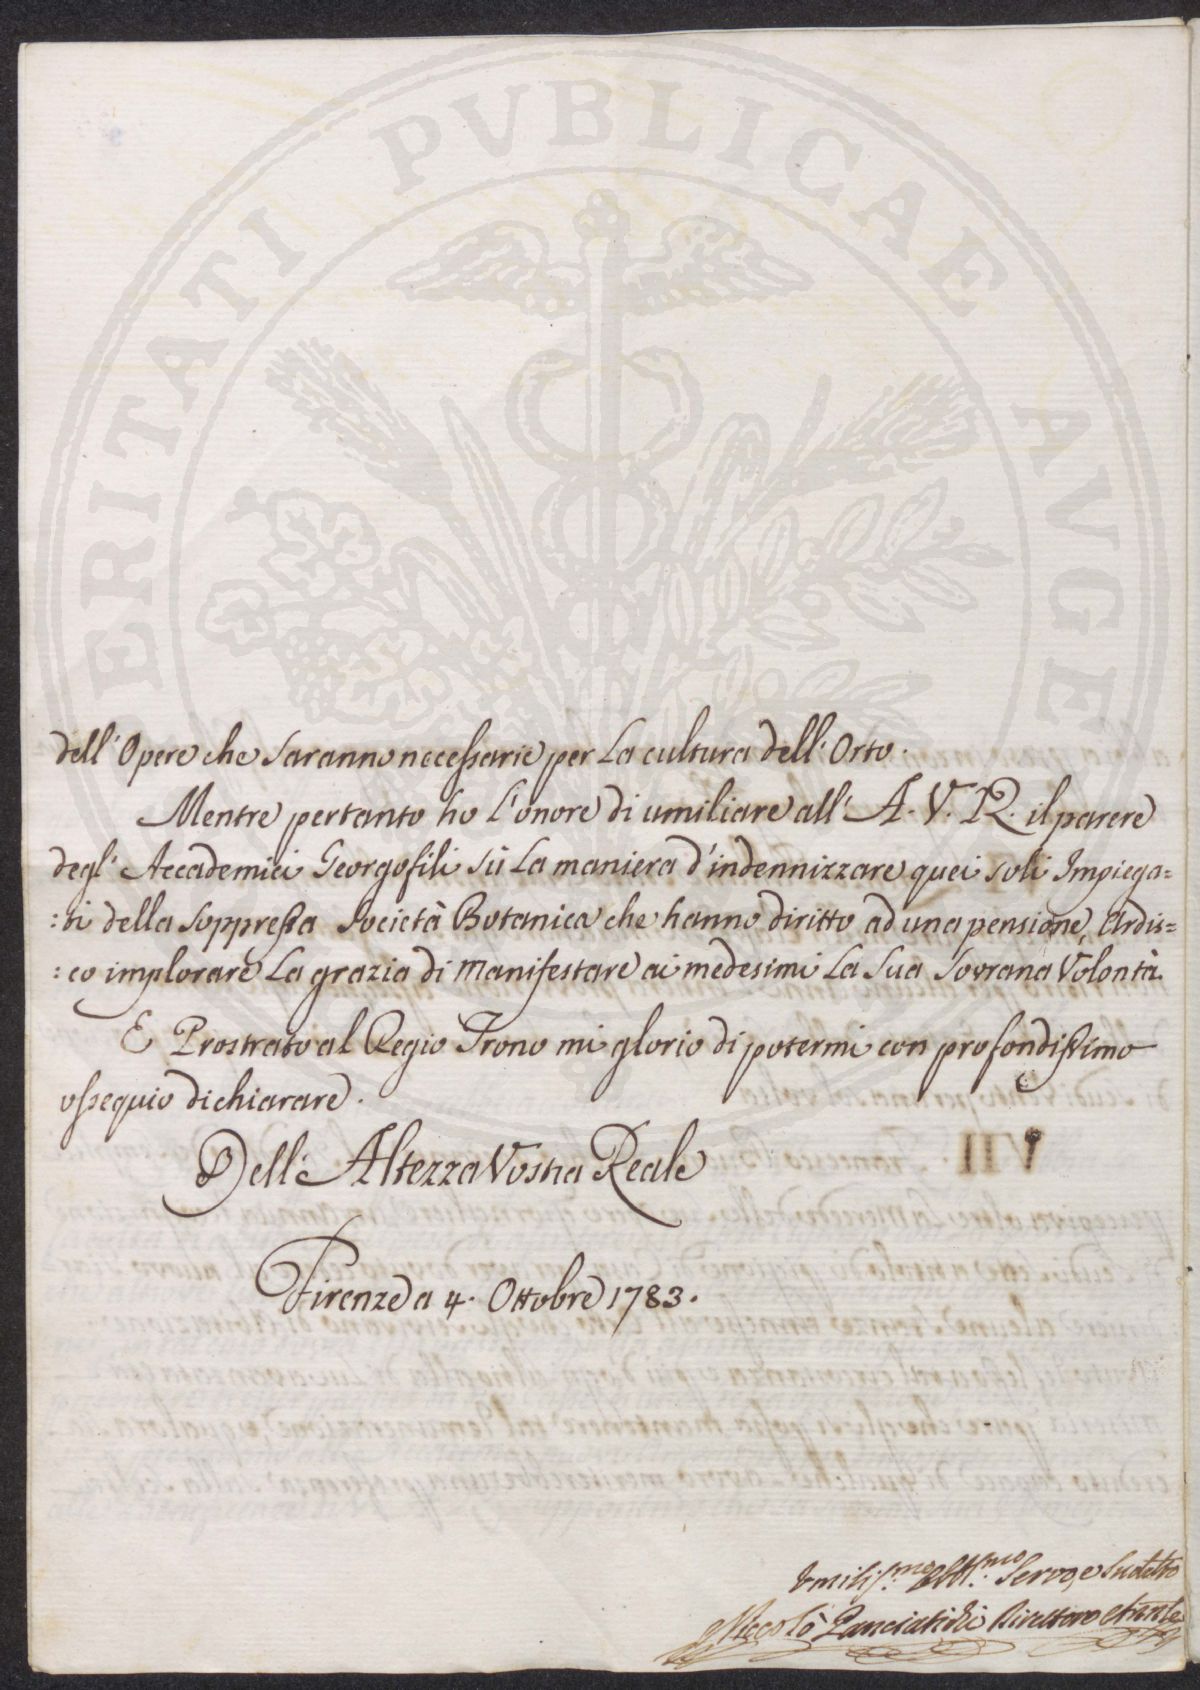 PROSPERITATI PVBLICAE AVGENDAE
dell'Opere che saranno necessarie per la cultura dell'Orto.
Mentre pertanto ho l'onore di umiliare all'A. V. R. il parere
degl'Accademici Georgofili sù la maniera d'indennizzare quei soli Impiega=
:ti della soppressa Società Botanica che hanno diritto ad una pensione, Ardis=
:co implorare la grazia di manifestare ai medesimi la sua Sovrana Volontà.
E Prostrato al Regio Trono mi glorio di potermi con profondissimo
ossequio dichiarare.
Dell'Altezza Vostra Reale
Firenze a 4. Ottobre 1783.
Umiliss.mo Obb.mo Servo, e Suddito
Niccolò Panciatichi Direttore Attuale